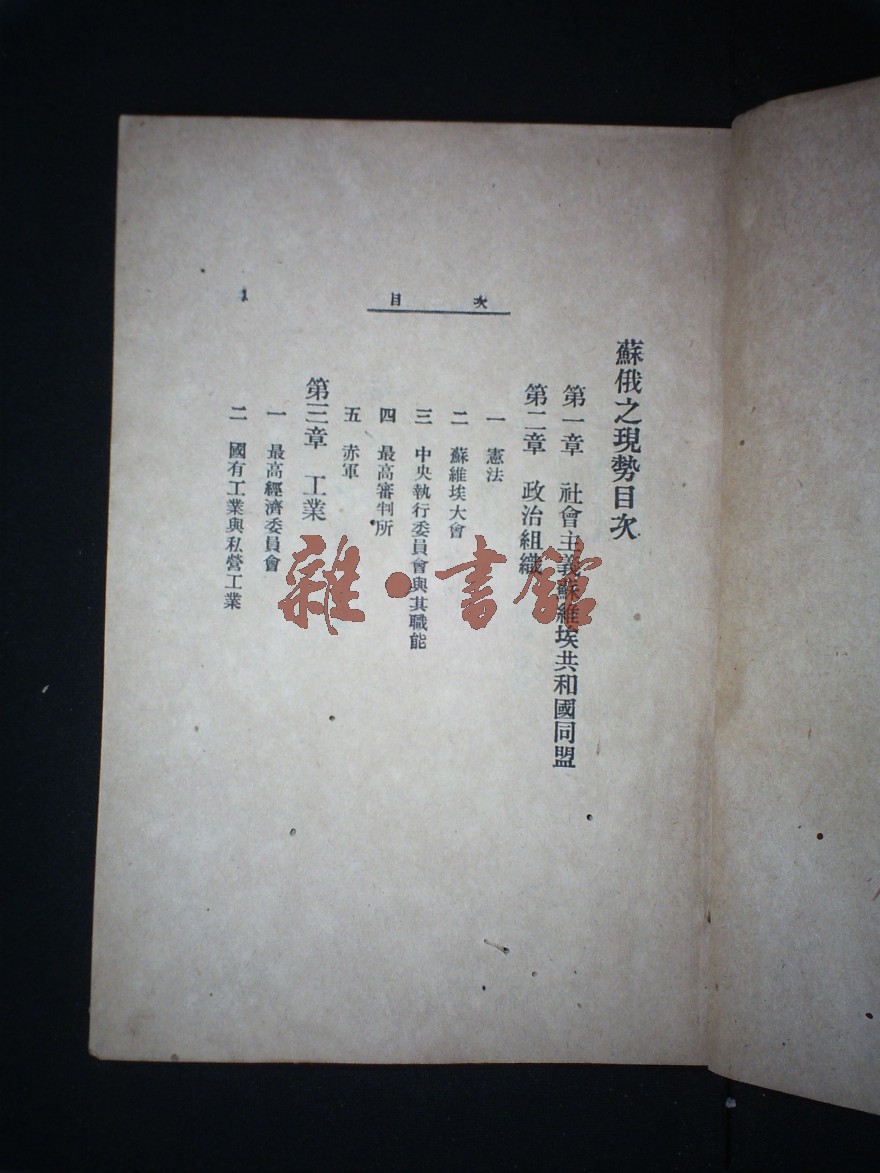 蘇俄之現勢目次
第一章 社會主義蘇維埃共和國同盟
第二章 政治組織
一 憲法
二 蘇維埃大會
三 中央執行委員會與其職能
四 最高審判所
五 赤軍
第三章 工業
一 最高經濟委員會
二 國有工業與私營工業
目次
1
雜·書館